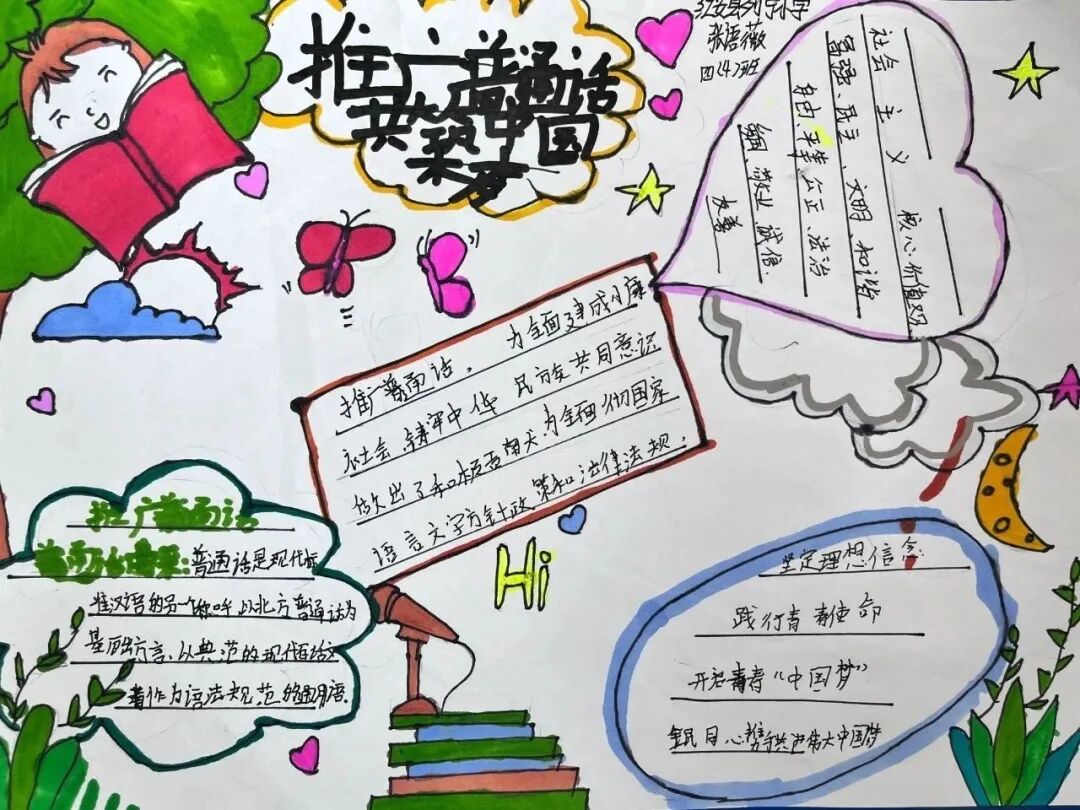 推广普通话
共筑中国
梦
小学
张语薇
四(4)班
社会 主 义 核心价值观
富强、民主、文明、和谐
自由、平等、公正、法治
敬业、诚信、
友善
推广普通话, 为全面建成小康
社会 中华 民族共同意识
做出了 为全面 彻国家
语言文字方针政策和法律法规。
推广普通话
普通话是现代标
准汉语的另一个称呼,以北方普通话为
基础方言、以典范的现代白话文
著作为语法规范的通用语.
Hi
坚定理想信念
践行青春使命
开启青春“中国梦”
全民同心携手共 伟大中国梦